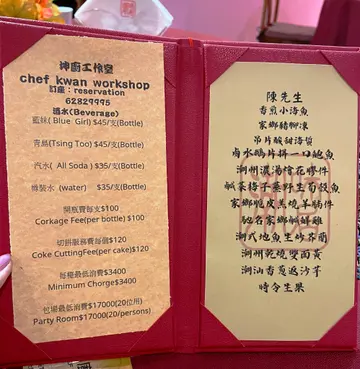 神廚工作室
chef kwan workshop
訂座：reservation
62829995
酒水(Beverage)
藍妹( Blue Girl) $45/支(Bottle)
青島(Tsing Too) $45/支(Bottle)
汽水( Ali Soda ) $35/支(Bottle)
樽裝水 (water) $35/支(Bottle)
開瓶費每支$100
Corkage Fee(per bottle) $100
切餅服務費每個$120
Coke CuttingFee(per cake)$120
每檯最低消費$3400
Minimum Chorge$3400
包場最低消費$17000(20位用)
Party Room$17000(20/persons)
陳先生
香煎小海魚
家鄉豬腳凍
吊片酸甜海蜇
鹵水鵝片拼一口鮑魚
潮州濃湯燴花膠件
鹹菜梅子蒸野生荀殼魚
家鄉脆皮黑燒羊腩件
馳名家鄉鹹鮮雞
潮式地魚生炒芥蘭
潮州乾燒雙面黃
潮汕香蔥返沙芋
時令生果